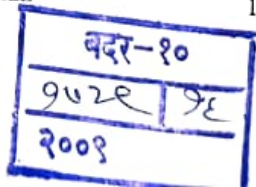 बदर-१०
१७२९ | १६
२००९